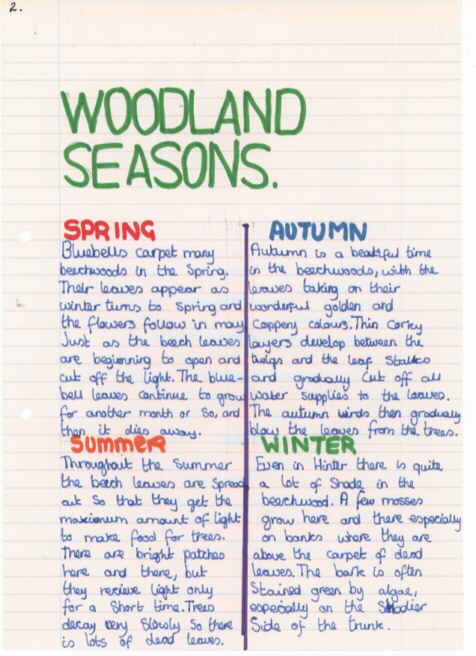 2.
WOODLAND
SEASONS.
SPRING
Bluebells carpet many
beechwoods in the Spring.
Their leaves appear as
winter turns to spring and
the flowers follow in may
Just as the beech leaves
are beginning to open and
cut off the light. The blue-
bell leaves continue to grow
for another month or so, and
then it dies away.
Summer
Throughout the Summer
the beech leaves are spread
out so that they get the
maximum amount of light
to make food for trees.
There are bright patches
here and there, but
they recieve light only
for a short time. Trees
decay very slowly so there
is lots of dead leaves.
AUTUMN
Autumn is a beatiful time
in the beechwoods, with the
leaves taking on their
wonderful golden and
Coppery colours. Thin Corky
layers develop between the
twigs and the leaf Stalks
and gradually cut off all
water supplies to the leaves.
The autumn winds then gradually
blow the leaves from the trees.
WINTER
Even in Winter there is quite
a lot of shade in the
beechwood. A few mosses
grow here and there especially
on banks where they are
above the carpet of dead
leaves. The bark is often
Stained green by algae,
especially on the Shadier
Side of the trunk.